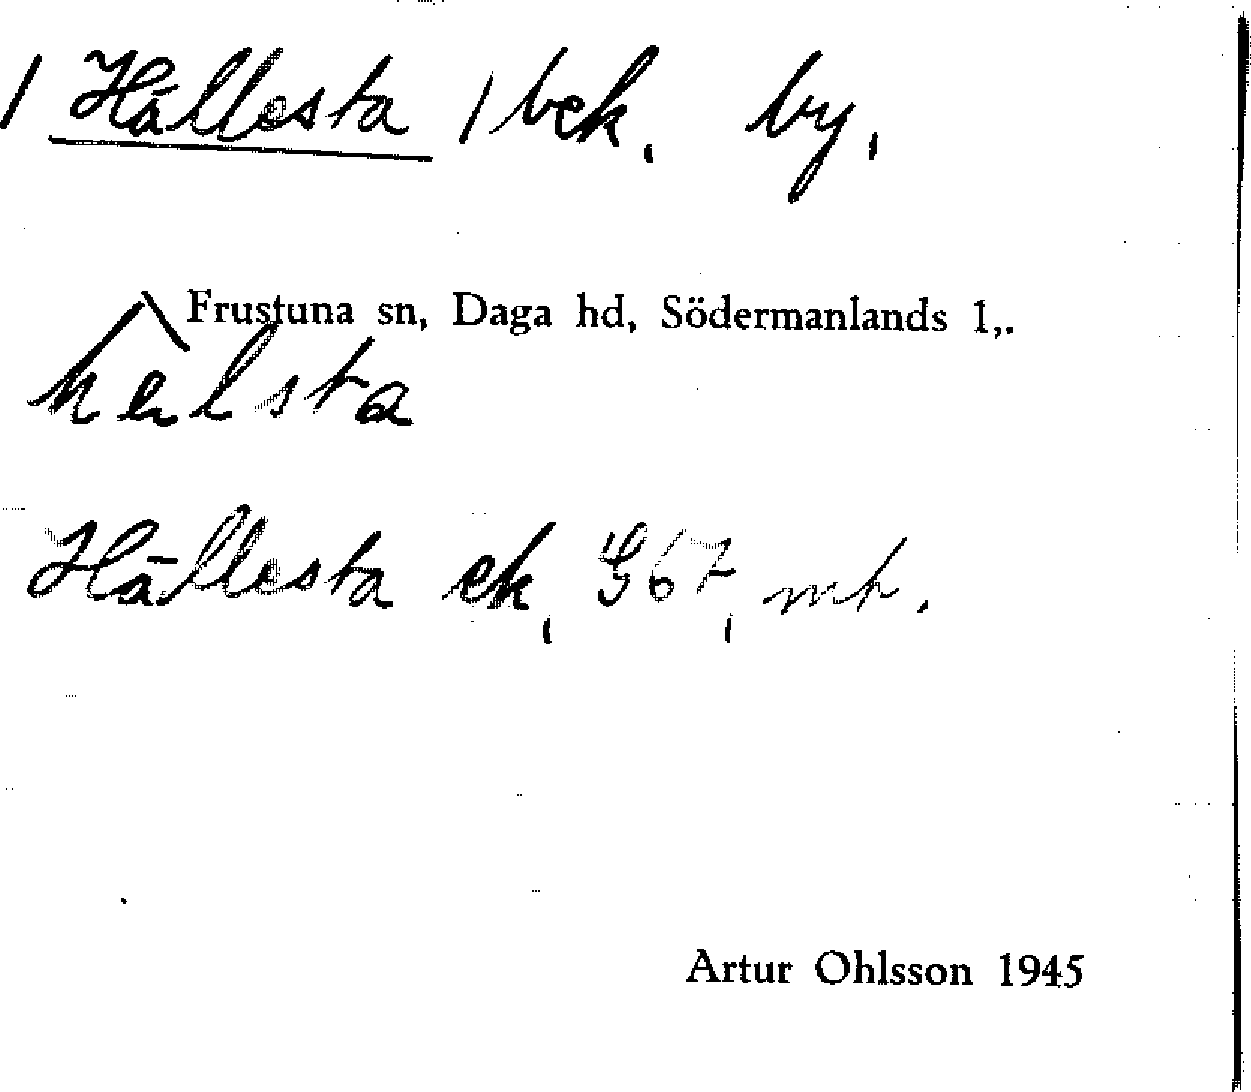 / Hällesta / bek. by,
Frustuna sn, Daga hd, Södermanlands l,.
hälsta
Hällesta ek, G67, mt.
Artur Ohlsson 1945